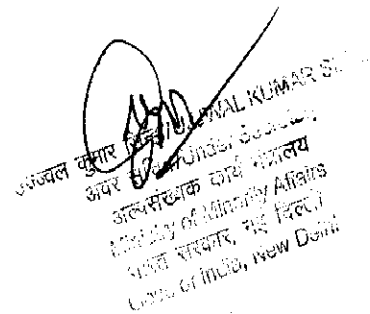 उज्ज्वल कुमार UJJWAL KUMAR
अवर Under Secretary
अल्पसंख्यक कार्य मंत्रालय
Ministry of Minority Affairs
भारत सरकार, नई दिल्ली
Govt. of India, New Delhi